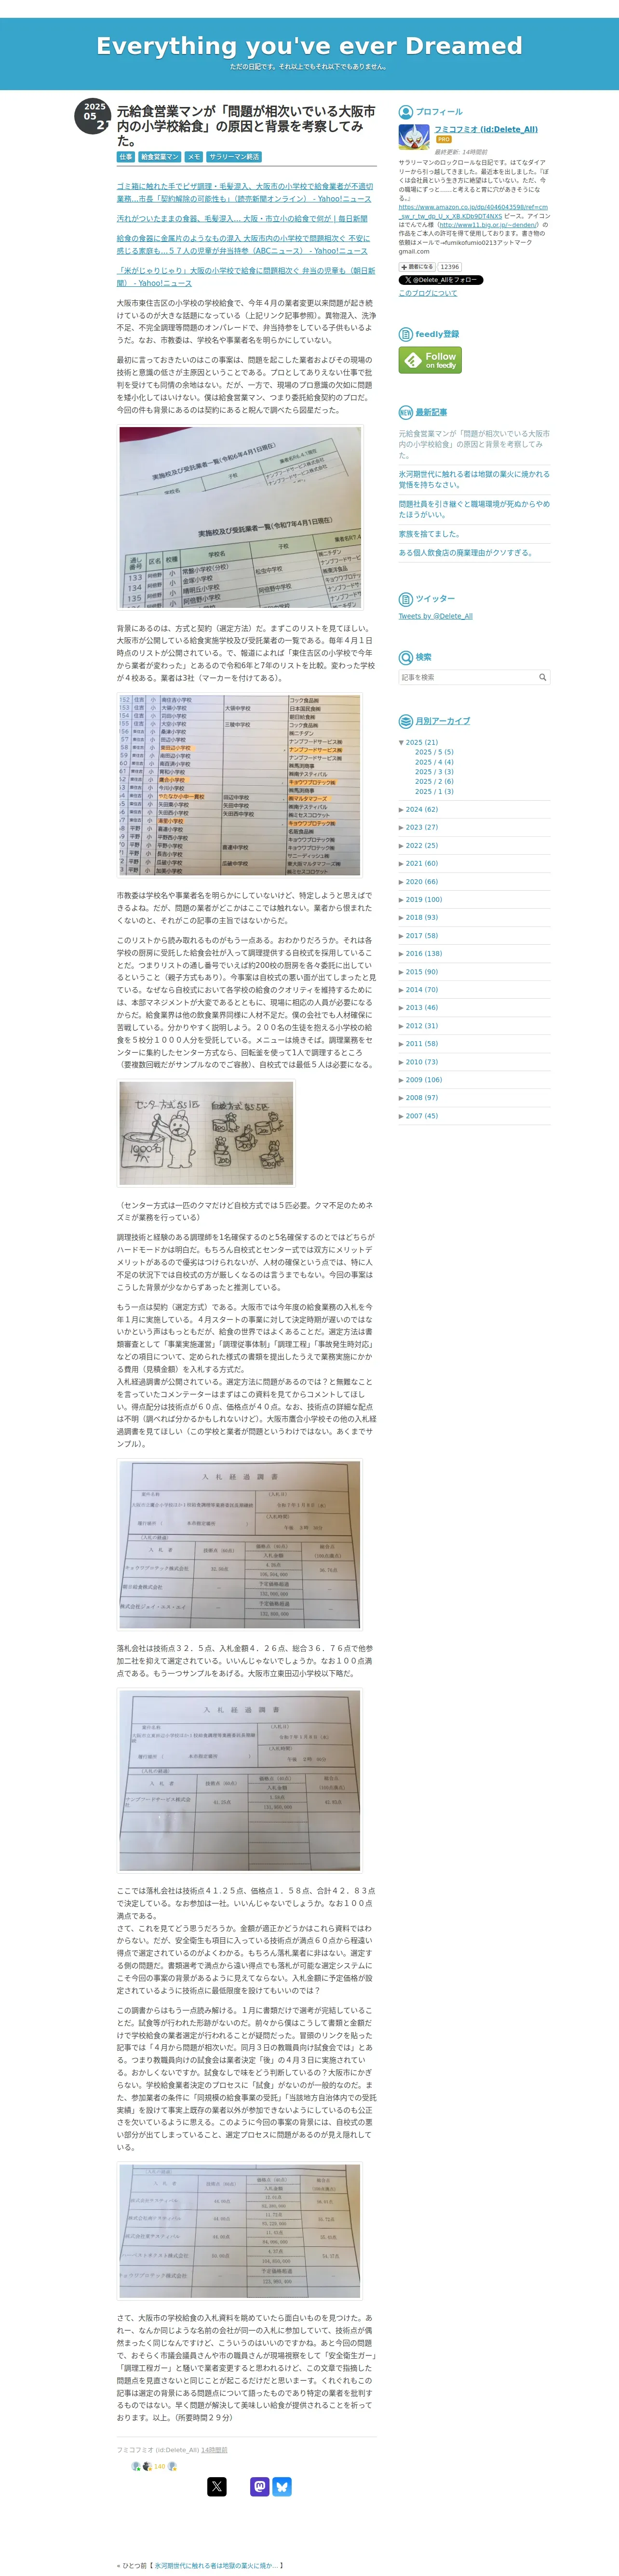 Everything you've ever Dreamed
ただの日記です。それ以上でもそれ以下でもありません。
2025
05
21
元給食営業マンが「問題が相次いでいる大阪市
内の小学校給食」の原因と背景を考察してみ
た。
仕事 給食営業マン メモ サラリーマン終活
ゴミ箱に触れた手でピザ調理・毛髪混入、大阪市の小学校で給食業者が不適切
業務…市長「契約解除の可能性も」（読売新聞オンライン） - Yahoo!ニュース
汚れがついたままの食器、毛髪混入… 大阪・市立小の給食で何が | 毎日新聞
給食の食器に金属片のようなもの混入 大阪市内の小学校で問題相次ぐ 不安に
感じる家庭も…５７人の児童が弁当持参（ABCニュース） - Yahoo!ニュース
「米がじゃりじゃり」大阪の小学校で給食に問題相次ぐ 弁当の児童も（朝日新
聞） - Yahoo!ニュース
大阪市東住吉区の小学校の学校給食で、今年４月の業者変更以来問題が起き続
けているのが大きな話題になっている（上記リンク記事参照）。異物混入、洗浄
不足、不完全調理等問題のオンパレードで、弁当持参をしている子供もいるよ
うだ。なお、市教委は、学校名や事業者名を明らかにしていない。
最初に言っておきたいのはこの事案は、問題を起こした業者およびその現場の
技術と意識の低さが主原因ということである。プロとしてありえない仕事で批
判を受けても同情の余地はない。だが、一方で、現場のプロ意識の欠如に問題
を矮小化してはいけない。僕は給食営業マン、つまり委託給食契約のプロだ。
今回の件も背景にあるのは契約にあると睨んで調べたら図星だった。
実施校及び受託業者一覧(令和6年4月1日現在)
実施校及び受託業者一覧(令和7年4月1日現在)
背景にあるのは、方式と契約（選定方法）だ。まずこのリストを見てほしい。
大阪市が公開している給食実施学校及び受託業者の一覧である。毎年４月１日
時点のリストが公開されている。で、報道によれば「東住吉区の小学校で今年
から業者が変わった」とあるので令和6年と7年のリストを比較。変わった学校
が４校ある。業者は3社（マーカーを付けてある）。
市教委は学校名や事業者名を明らかにしていないけど、特定しようと思えばで
きるよね。だが、問題の業者がどこかはここでは触れない。業者から恨まれた
くないのと、それがこの記事の主旨ではないからだ。
このリストから読み取れるものがもう一点ある。おわかりだろうか。それは各
学校の厨房に受託した給食会社が入って調理提供する自校式を採用しているこ
とだ。つまりリストの通し番号でいえば約200校の厨房を各々委託に出してい
るということ（親子方式もあり）。今事案は自校式の悪い面が出てしまったと見
ている。なぜなら自校式において各学校の給食のクオリティを維持するために
は、本部マネジメントが大変であるとともに、現場に相応の人員が必要になる
からだ。給食業界は他の飲食業界同様に人材不足だ。僕の会社でも人材確保に
苦戦している。分かりやすく説明しよう。２００名の生徒を抱える小学校の給
食を５校分１０００人分を受託している。メニューは焼きそば。調理業務をセ
ンターに集約したセンター方式なら、回転釜を使って1人で調理するところ
（要複数回戦だがサンプルなのでご容赦）、自校式では最低５人は必要になる。
（センター方式は一匹のクマだけど自校方式では５匹必要。クマ不足のためネ
ズミが業務を行っている）
調理技術と経験のある調理師を1名確保するのと5名確保するのとではどちらが
ハードモードかは明白だ。もちろん自校式とセンター式では双方にメリットデ
メリットがあるので優劣はつけられないが、人材の確保という点では、特に人
不足の状況下では自校式の方が厳しくなるのは言うまでもない。今回の事案は
こうした背景が少なからずあったと推測している。
もう一点は契約（選定方式）である。大阪市では今年度の給食業務の入札を今
年１月に実施している。４月スタートの事業に対して決定時期が遅いのではな
いかという声はもっともだが、給食の世界ではよくあることだ。選定方法は書
類審査として「事業実施運営」「調理従事体制」「調理工程」「事故発生時対応」
などの項目について、定められた様式の書類を提出したうえで業務実施にかか
る費用（見積金額）を入札する方式だ。
入札経過調書が公開されている。選定方法に問題があるのでは？と無難なこと
を言っていたコメンテーターはまずはこの資料を見てからコメントしてほし
い。得点配分は技術点が６０点、価格点が４０点。なお、技術点の詳細な配点
は不明（調べれば分かるかもしれないけど）。大阪市鷹合小学校その他の入札経
過調書を見てほしい（この学校と業者が問題というわけではない。あくまでサ
ンプル）。
入 札 経 過 調 書
落札会社は技術点３２．５点、入札金額４．２６点、総合３６．７６点で他参
加二社を抑えて選定されている。いいんじゃないでしょうか。なお１００点満
点である。もう一つサンプルをあげる。大阪市立東田辺小学校以下略だ。
入 札 経 過 調 書
ここでは落札会社は技術点４１.２５点、価格点１．５８点、合計４２．８３点
で決定している。なお参加は一社。いいんじゃないでしょうか。なお１００点
満点である。
さて、これを見てどう思うだろうか。金額が適正かどうかはこれら資料ではわ
からない。だが、安全衛生も項目に入っている技術点が満点６０点から程遠い
得点で選定されているのがよくわかる。もちろん落札業者に非はない。選定す
る側の問題だ。書類選考で満点から遠い得点でも落札が可能な選定システムに
こそ今回の事案の背景があるように見えてならない。入札金額に予定価格が設
定されているように技術点に最低限度を設けてもいいのでは？
この調書からはもう一点読み解ける。１月に書類だけで選考が完結しているこ
とだ。試食等が行われた形跡がないのだ。前々から僕はこうして書類と金額だ
けで学校給食の業者選定が行われることが疑問だった。冒頭のリンクを貼った
記事では「４月から問題が相次いだ。同月３日の教職員向け試食会では」とあ
る。つまり教職員向けの試食会は業者決定「後」の４月３日に実施されてい
る。おかしくないですか。試食なしで味をどう判断しているの？大阪市にかぎ
らない。学校給食業者決定のプロセスに「試食」がないのが一般的なのだ。ま
た、参加業者の条件に「同規模の給食事業の受託」「当該地方自治体内での受託
実績」を設けて事実上既存の業者以外が参加できないようにしているのも公正
さを欠いているように思える。このように今回の事案の背景には、自校式の悪
い部分が出てしまっていること、選定プロセスに問題があるのが見え隠れして
いる。
さて、大阪市の学校給食の入札資料を眺めていたら面白いものを見つけた。あ
れー、なんか同じような名前の会社が同一の入札に参加していて、技術点が偶
然まったく同じなんですけど、こういうのはいいのですかね。あと今回の問題
で、おそらく市議会議員さんや市の職員さんが現場視察をして「安全衛生ガー」
「調理工程ガー」と騒いで業者変更すると思われるけど、この文章で指摘した
問題点を見直さないと同じことが起こるだけだと思いまーす。くれぐれもこの
記事は選定の背景にある問題点について語ったものであり特定の業者を批判す
るものではない。早く問題が解決して美味しい給食が提供されることを祈って
おります。以上。（所要時間２９分）
フミコフミオ (id:Delete_All) 14時間前
140
« ひとつ前【 氷河期世代に触れる者は地獄の業火に焼か… 】
プロフィール
フミコフミオ (id:Delete_All)
PRO
最終更新: 14時間前
サラリーマンのロックロールな日記です。はてなダイア
リーから引っ越してきました。最近本を出しました。『ぼ
くは会社員という生き方に絶望はしていない。ただ、今
の職場にずっと……と考えると胃に穴があきそうにな
る。』
https://www.amazon.co.jp/dp/4046043598/ref=cm
_sw_r_tw_dp_U_x_XB.KDb9DT4NXS ピース。アイコン
はでんでん様（http://www11.big.or.jp/~denden/）の
作品をご本人の許可を得て使用しております。書き物の
依頼はメールで→fumikofumio0213アットマーク
gmail.com
読者になる 12396
@Delete_Allをフォロー
このブログについて
feedly登録
Follow
on feedly
最新記事
元給食営業マンが「問題が相次いでいる大阪市
内の小学校給食」の原因と背景を考察してみ
た。
氷河期世代に触れる者は地獄の業火に焼かれる
覚悟を持ちなさい。
問題社員を引き継ぐと職場環境が死ぬからやめ
たほうがいい。
家族を捨てました。
ある個人飲食店の廃業理由がクソすぎる。
ツイッター
Tweets by @Delete_All
検索
記事を検索
月別アーカイブ
▼ 2025 (21)
2025 / 5 (5)
2025 / 4 (4)
2025 / 3 (3)
2025 / 2 (6)
2025 / 1 (3)
▶ 2024 (62)
▶ 2023 (27)
▶ 2022 (25)
▶ 2021 (60)
▶ 2020 (66)
▶ 2019 (100)
▶ 2018 (93)
▶ 2017 (58)
▶ 2016 (138)
▶ 2015 (90)
▶ 2014 (70)
▶ 2013 (46)
▶ 2012 (31)
▶ 2011 (58)
▶ 2010 (73)
▶ 2009 (106)
▶ 2008 (97)
▶ 2007 (45)